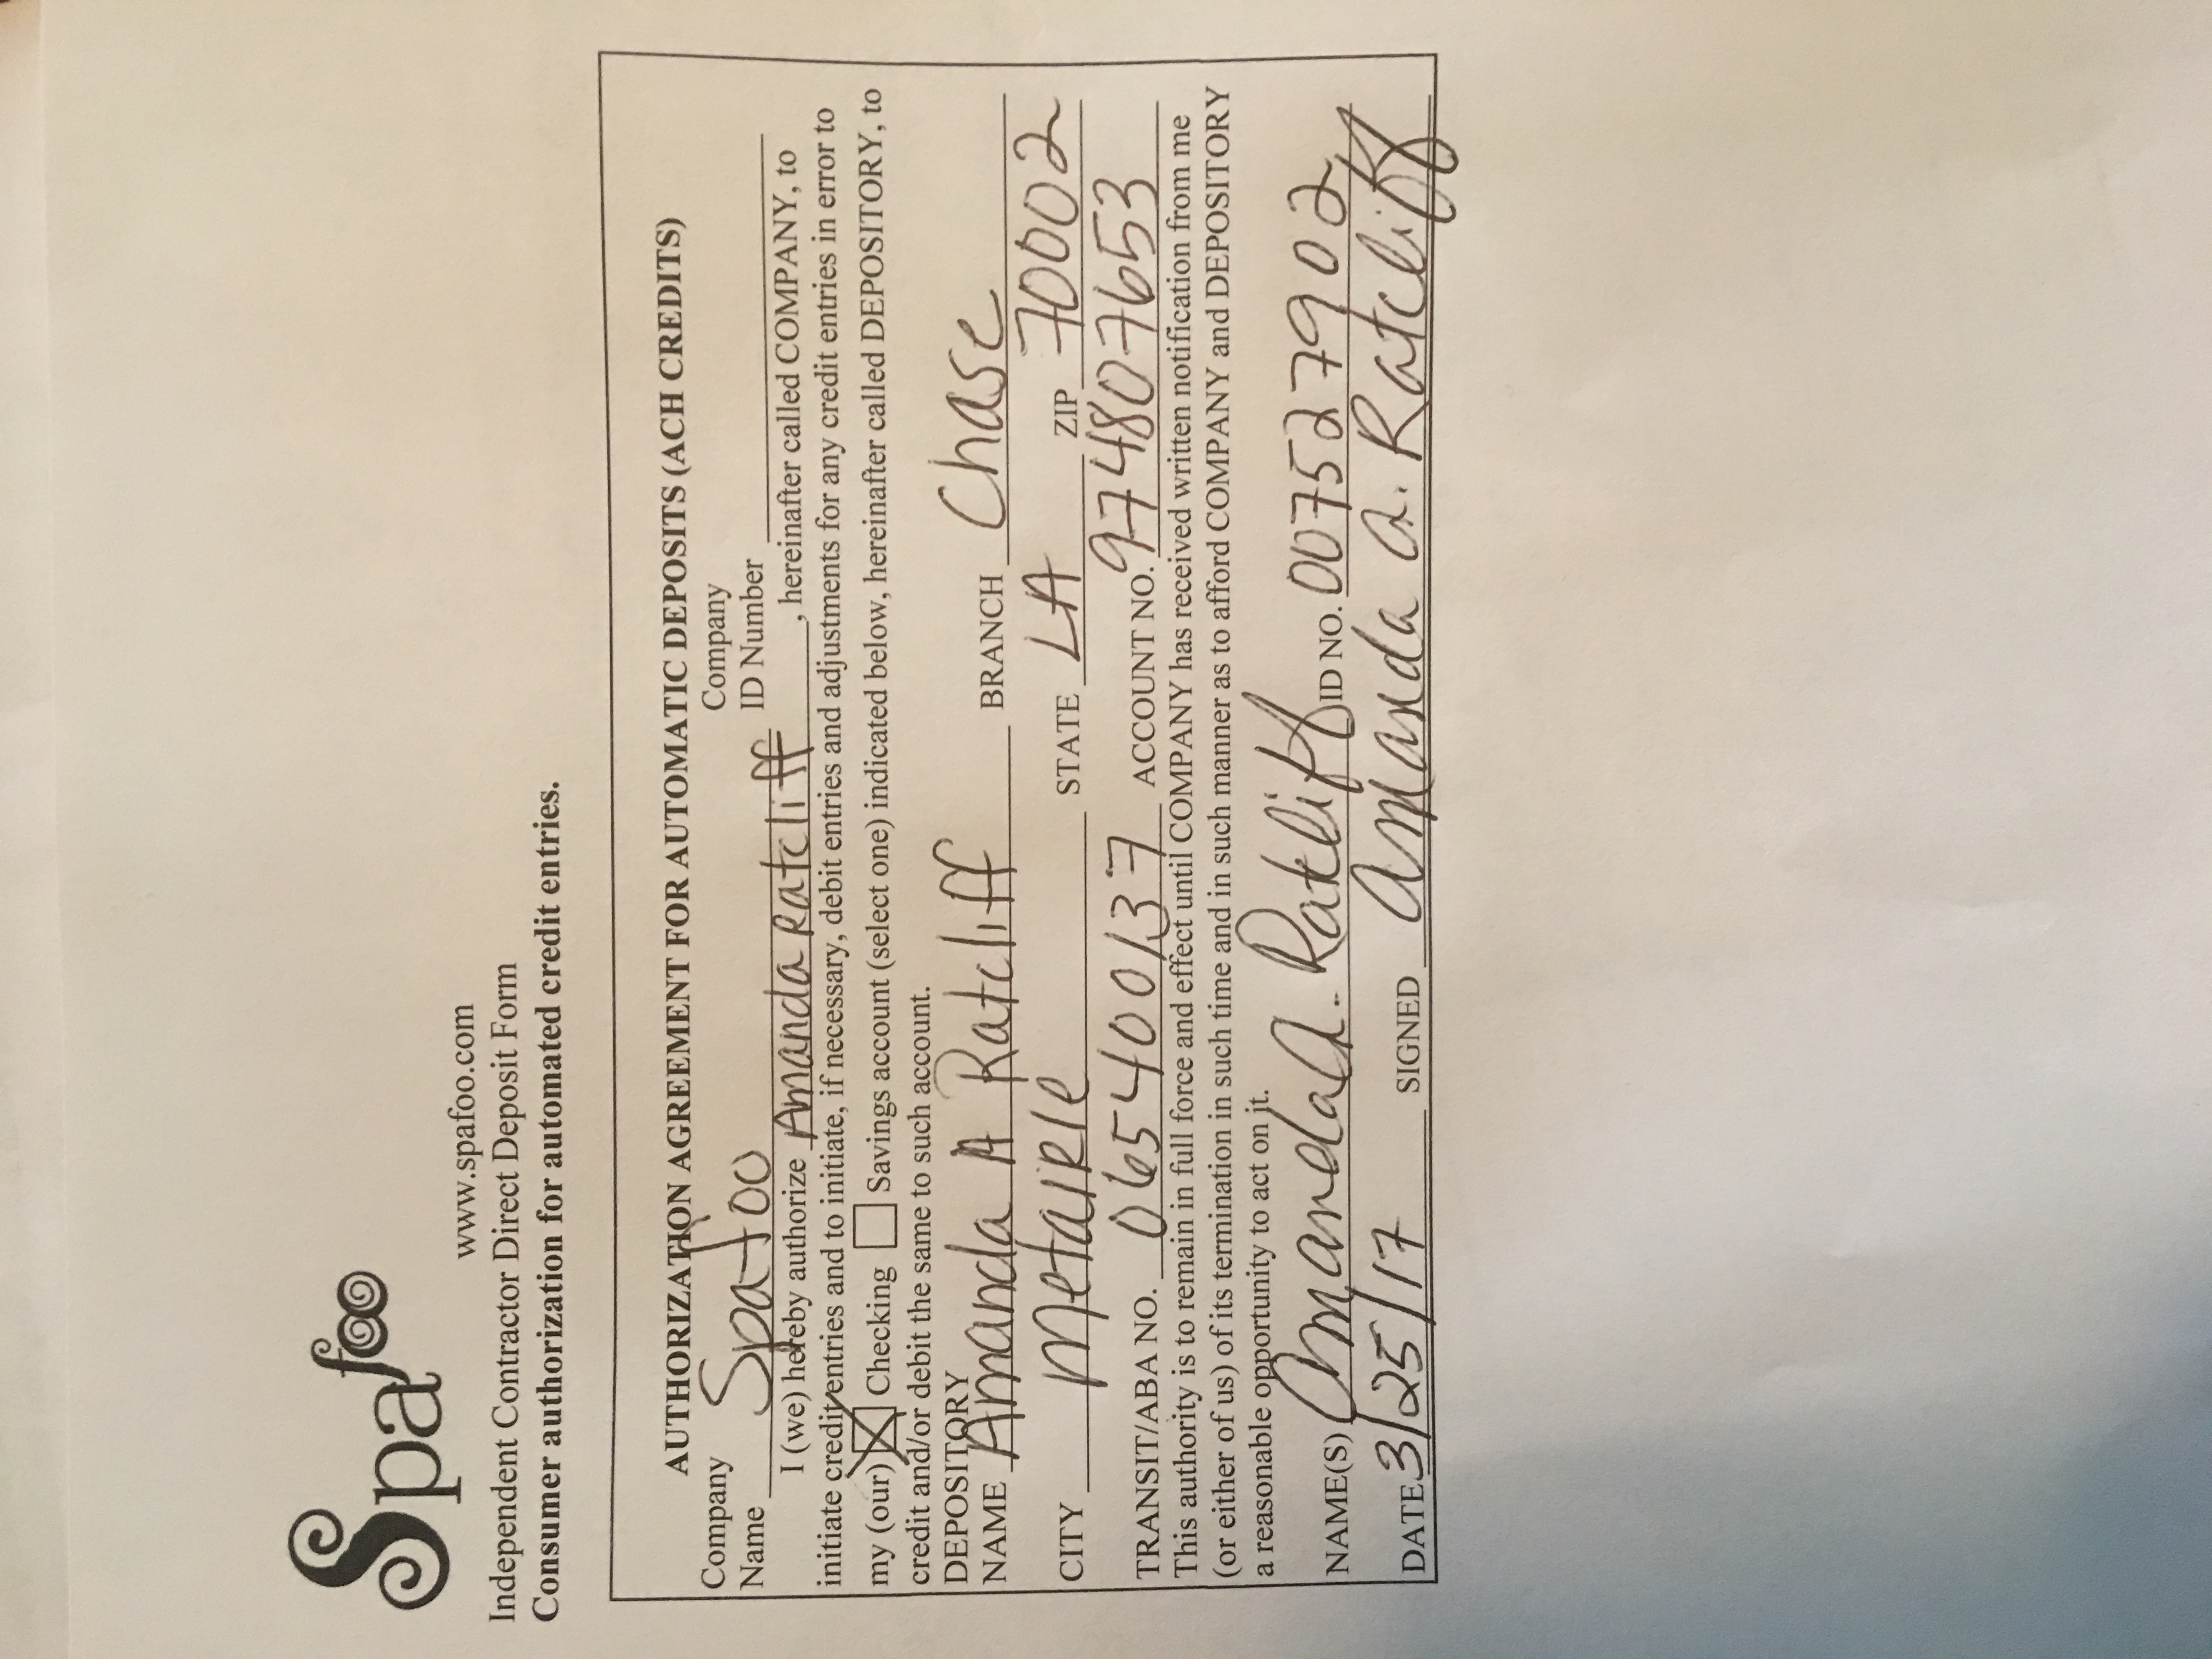 Spafoo
www.spafoo.com
Independent Contractor Direct Deposit Form
Consumer authorization for automated credit entries.
AUTHORIZATION AGREEMENT FOR AUTOMATIC DEPOSITS (ACH CREDITS)
Company Name Spafoo Company ID Number
I (we) hereby authorize Amanda Ratcliff, hereinafter called COMPANY, to
initiate credit entries and to initiate, if necessary, debit entries and adjustments for any credit entries in error to
my (our) Checking Savings account (select one) indicated below, hereinafter called DEPOSITORY, to
credit and/or debit the same to such account.
DEPOSITORY
NAME Amanda A Ratcliff BRANCH Chase
CITY Metairie STATE LA ZIP 70002
TRANSIT/ABA NO. 065400137 ACCOUNT NO. 974807653
This authority is to remain in full force and effect until COMPANY has received written notification from me
(or either of us) of its termination in such time and in such manner as to afford COMPANY and DEPOSITORY
a reasonable opportunity to act on it.
NAME(S) Amanda A. Ratcliff ID NO. 007527902
DATE 3/25/17 SIGNED Amanda A. Ratcliff